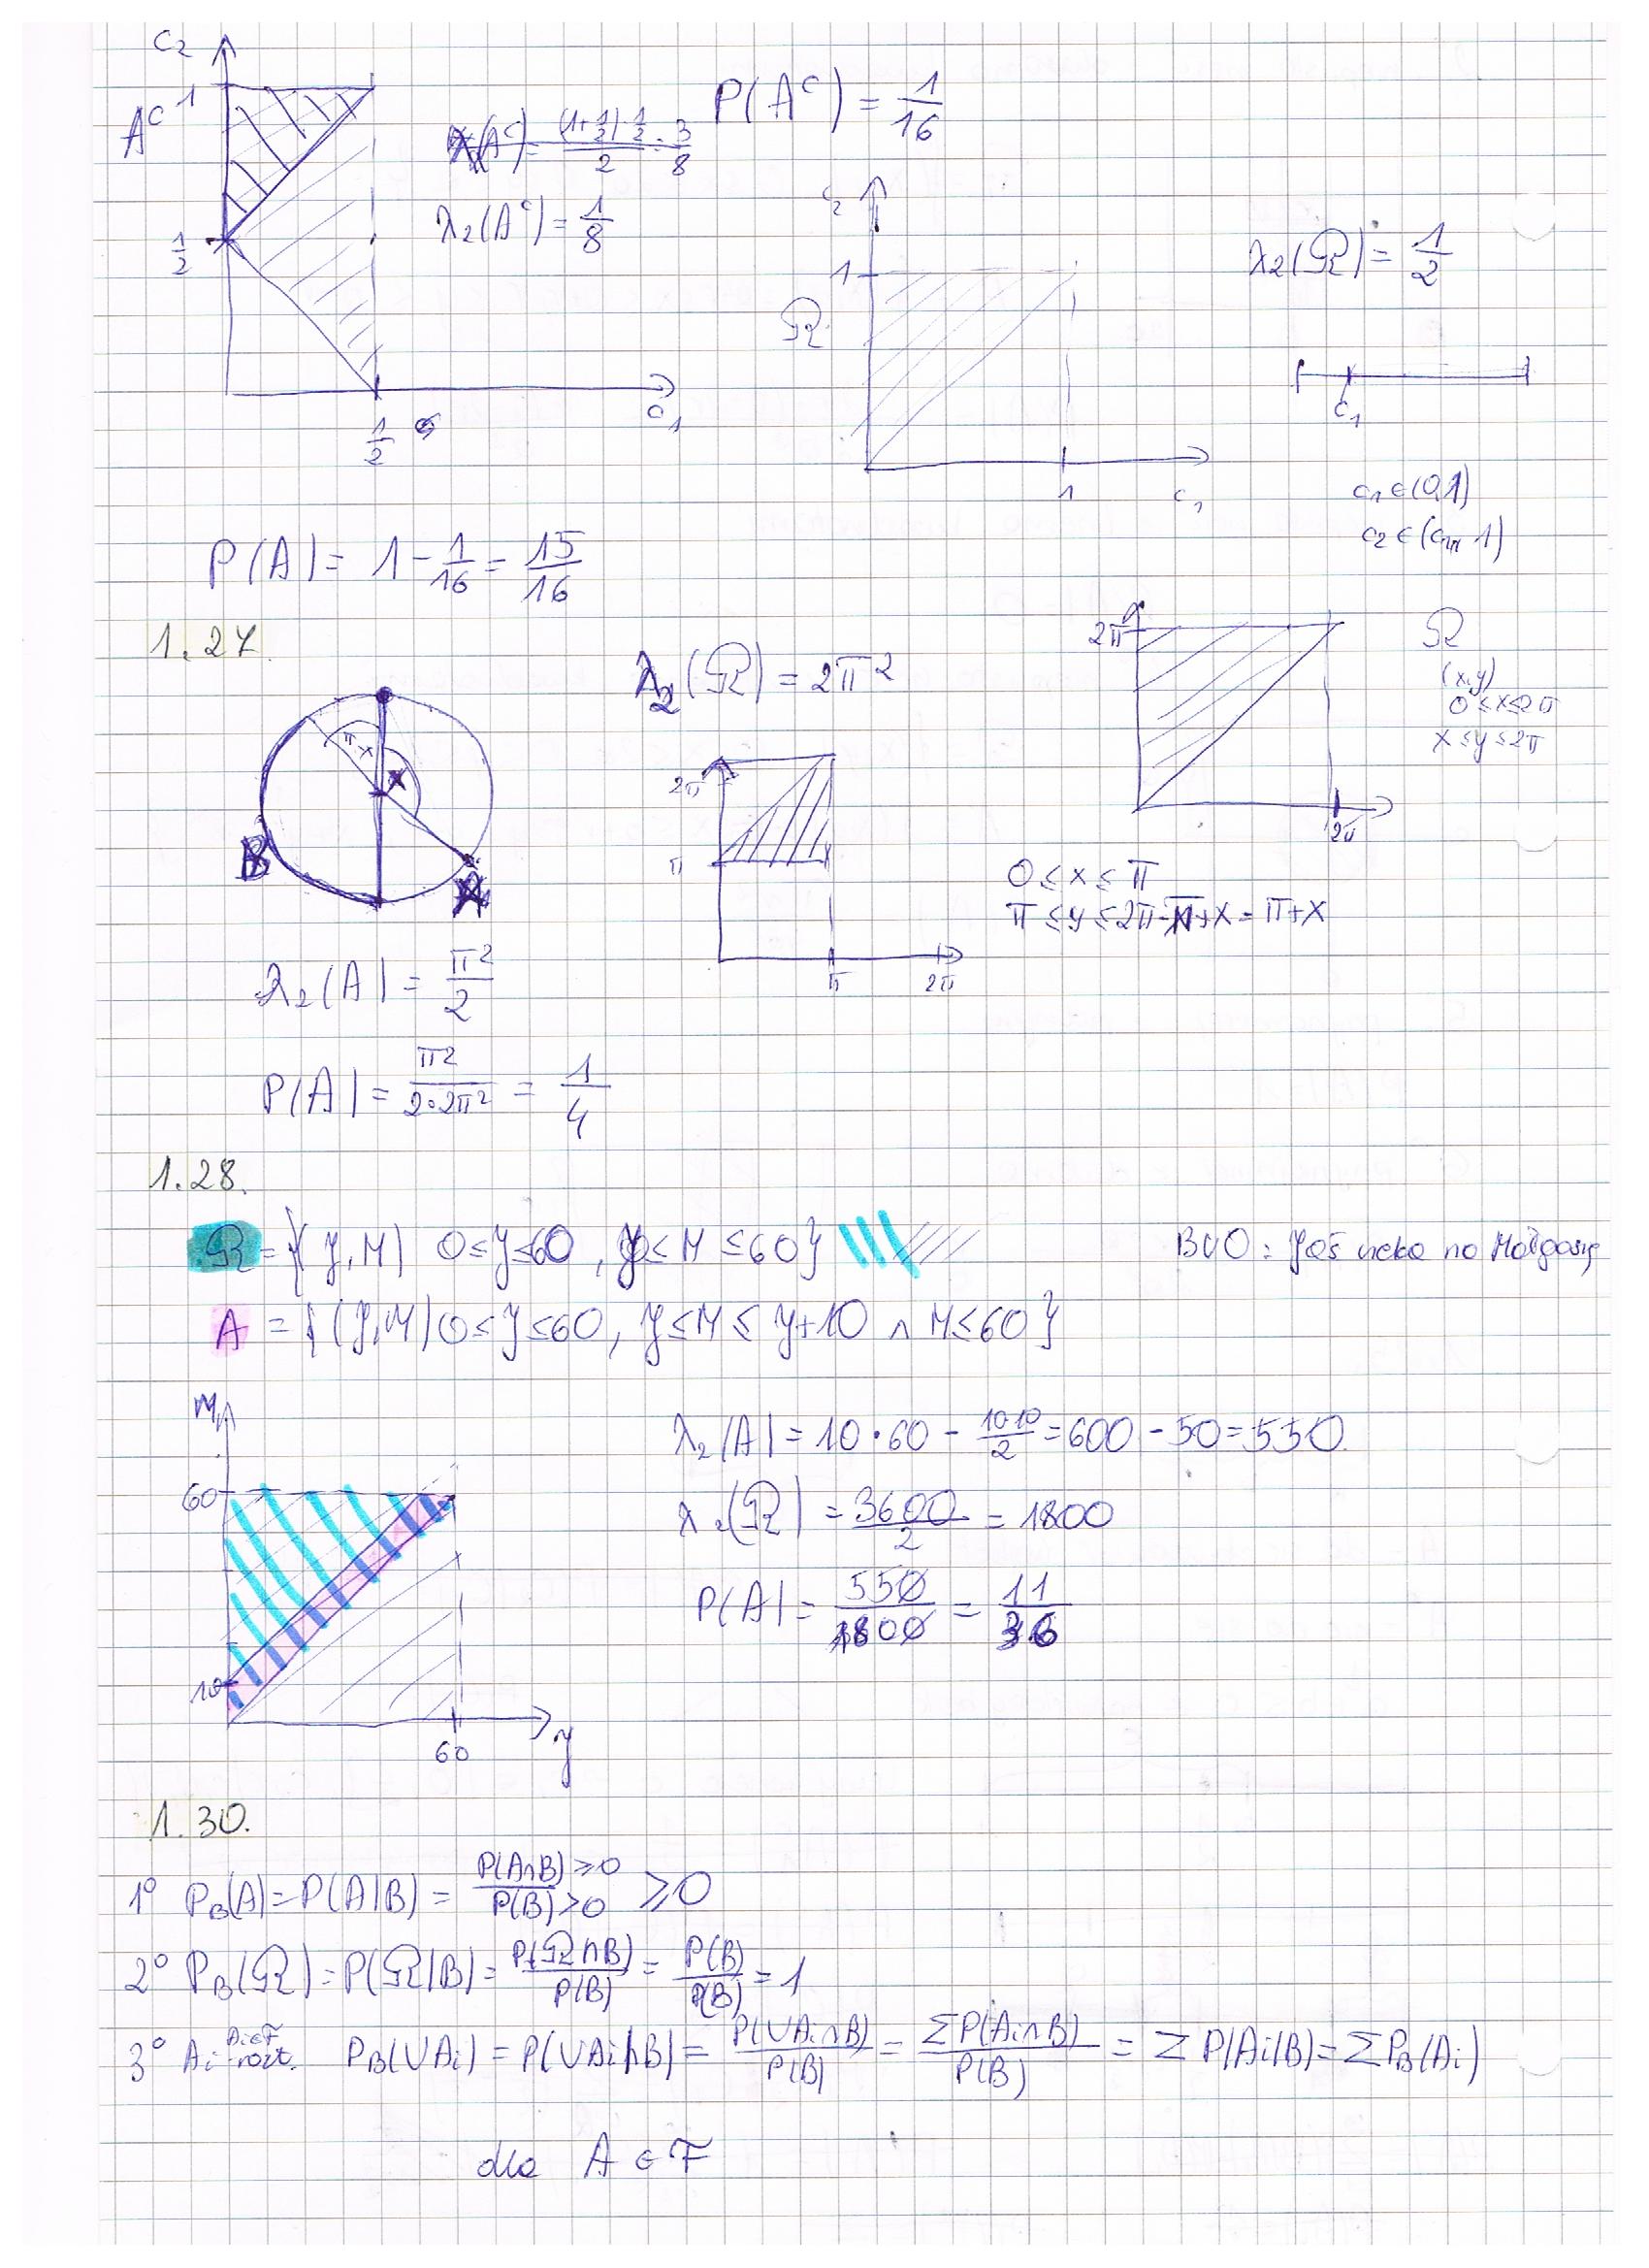 C₂
1
A^C
P(A^C) = 1/16
λ₂(A^C) = 1/8
1/2
C₂
1
Ω
λ₂(Ω) = 1/2
C₁
1/2
C₁
1
C₁
c₁ ∈ (0,1)
c₂ ∈ (c₁, 1)
P(A) = 1 - 1/16 = 15/16
1.27.
λ₂(Ω) = 2π²
2π
Ω
(x,y)
0 ≤ x ≤ 2π
x ≤ y ≤ 2π
2π
π-x
x
B
A
2π
π
π
2π
0 ≤ x ≤ π
π ≤ y ≤ 2π-π+x = π+x
λ₂(A) = π²/2
P(A) = π²/(2·2π²) = 1/4
1.28.
Ω = {(J,M) 0≤J≤60, 0≤M≤60}
BUO: Jaś czeka na Małgosię
A = {(J,M) 0≤J≤60, J≤M≤J+10 ∧ M≤60}
M
60
10
60
J
λ₂(A) = 10·60 - 10·10/2 = 600 - 50 = 550
λ₂(Ω) = 3600/2 = 1800
P(A) = 550/1800 = 11/36
1.30.
1° P_B(A) = P(A|B) = P(A∩B)≥0 / P(B)>0 ≥ 0
2° P_B(Ω) = P(Ω|B) = P(Ω∩B)/P(B) = P(B)/P(B) = 1
3° A_i∈F A_i rozł. P_B(∪A_i) = P(∪A_i|B) = P(∪A_i∩B)/P(B) = ΣP(A_i∩B)/P(B) = ΣP(A_i|B) = ΣP_B(A_i)
dla A ∈ F